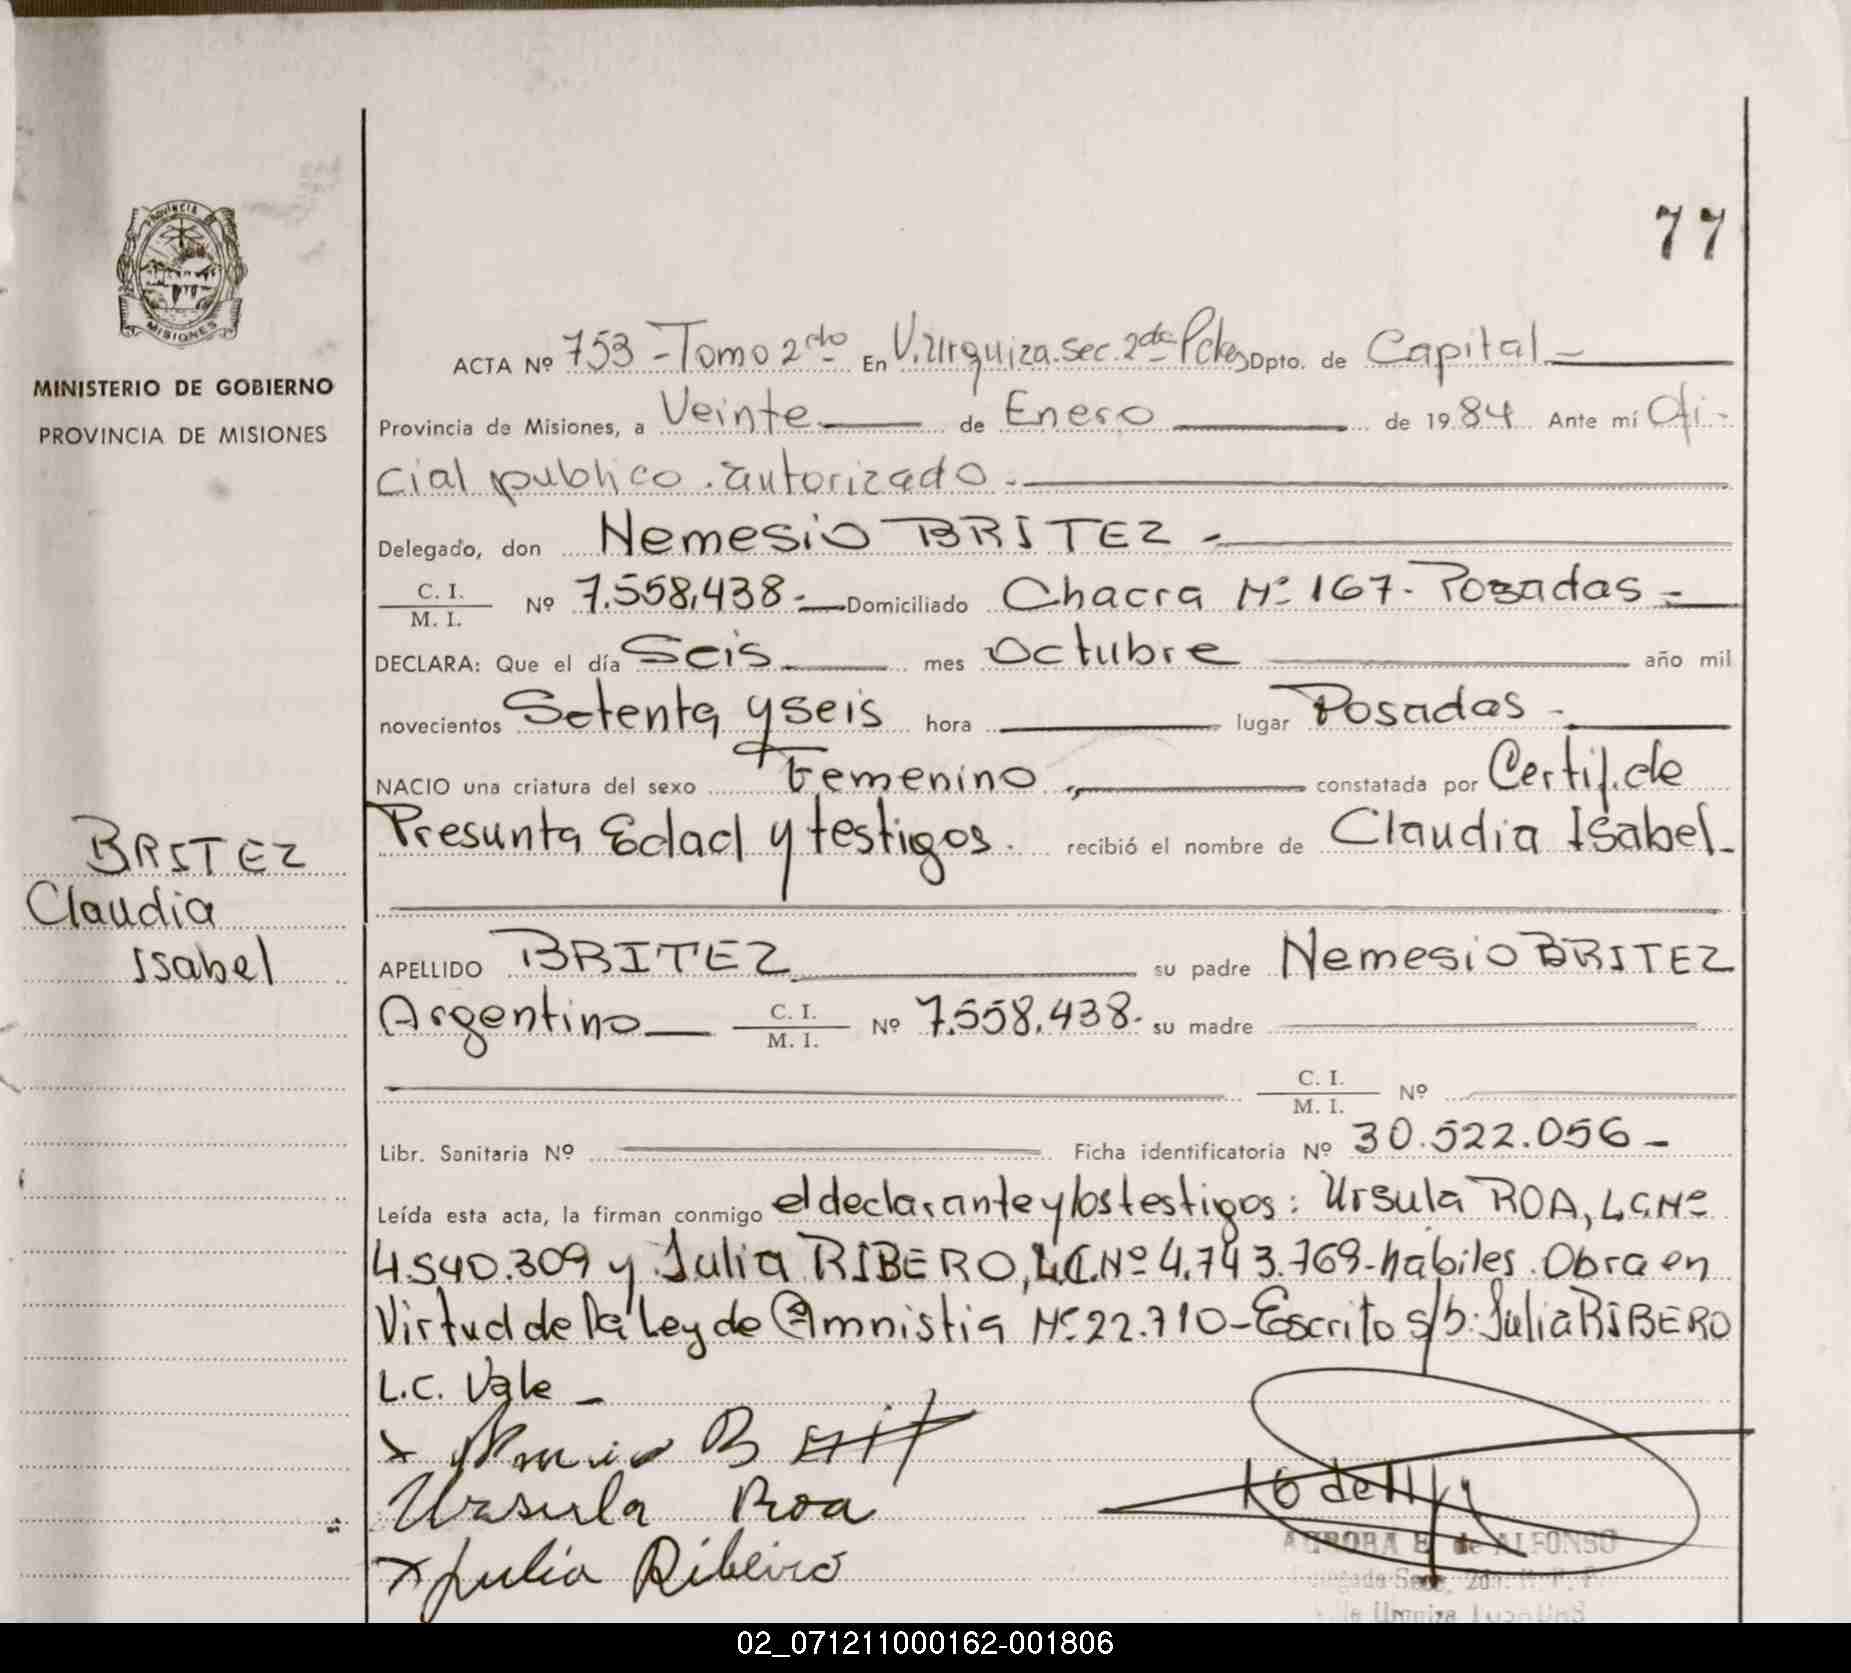 77
PROVINCIA
MISIONES
MINISTERIO DE GOBIERNO
PROVINCIA DE MISIONES
ACTA Nº 753 - Tomo 2cdo En V. Urquiza. sec. 2da Pdas Dpto. de Capital -
Provincia de Misiones, a Veinte de Enero de 1984 Ante mí Ofi-
cial publico autorizado -
Delegado, don Nemesio BRITEZ -
C. I.
M. I. Nº 7.558.438 - Domiciliado Chacra Nº 167 - Posadas -
DECLARA: Que el día Seis mes Octubre año mil
novecientos Setenta y seis hora lugar Posadas -
NACIO una criatura del sexo Femenino constatada por Certif. de
Presunta Edad y testigos. recibió el nombre de Claudia Isabel -
BRITEZ
Claudia
Isabel
APELLIDO BRITEZ su padre Nemesio BRITEZ
Argentino C. I.
M. I. Nº 7.558.438 - su madre
C. I.
M. I. Nº
Libr. Sanitaria Nº Ficha identificatoria Nº 30.522.056 -
Leída esta acta, la firman conmigo el declarante y los testigos: Ursula ROA, L.C. Nº
4.540.309 y Julia RIBERO, L.C. Nº 4.743.769 - habiles. Obra en
Virtud de la Ley de Amnistia Nº 22.710 - Escrito s/b: Julia RIBERO
L.C. Vale -
Ursula Roa
x Julia Ribeiro
AURORA B. de ALFONSO
02_071211000162-001806